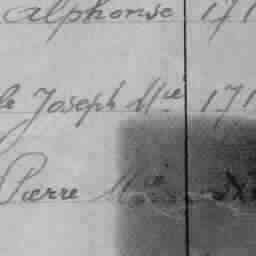 Alphonse 171
Joseph Mie 171
Pierre Mie